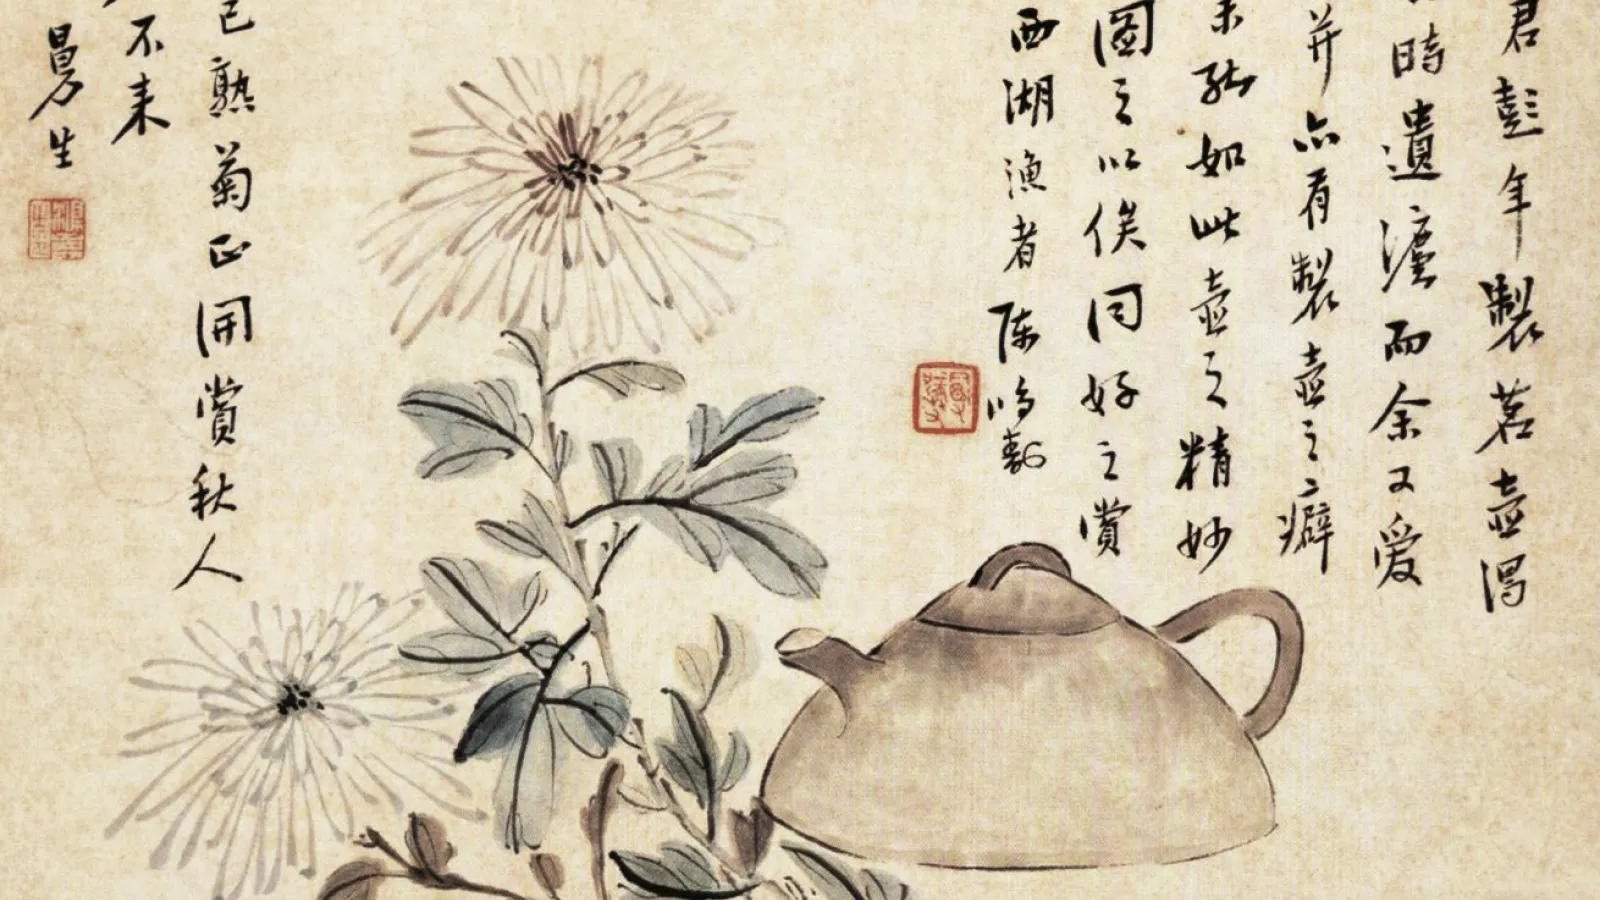 君彭年製茗壺渴
時遺瀘而余又爱
并亦有製壺之癖
未能如此壺之精妙
圖之以俟同好之賞
西湖漁者陈鸿壽
已熟菊正開賞秋人
不来
曼生